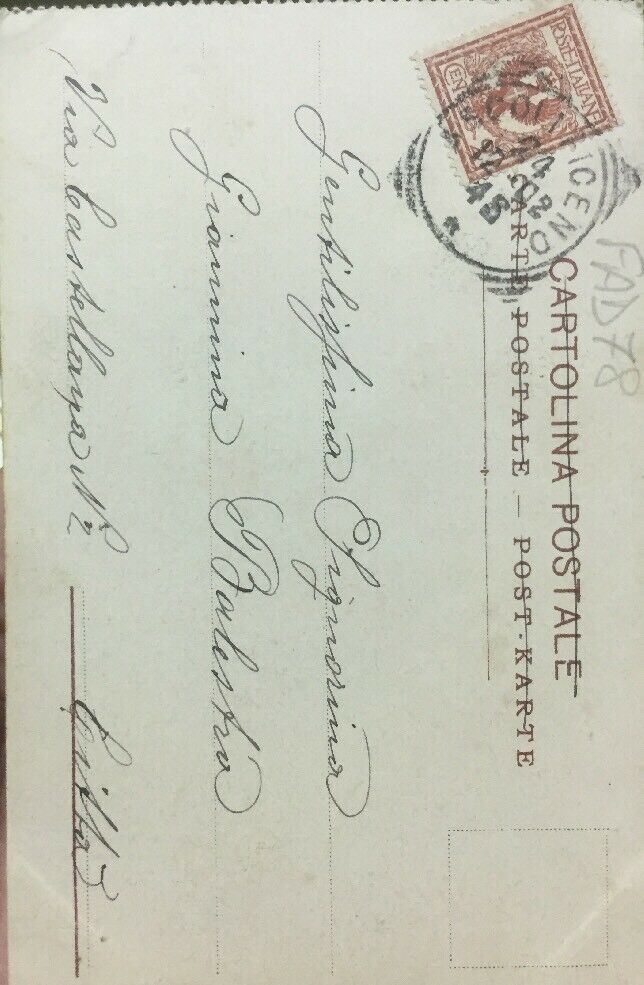 CARTOLINA POSTALE
CARTE POSTALE — POST-KARTE
POSTE ITALIANE
CEN
FAD 78
Gentilissima Signorina
Giannina Balestra
Via Castellaya N 2
Città